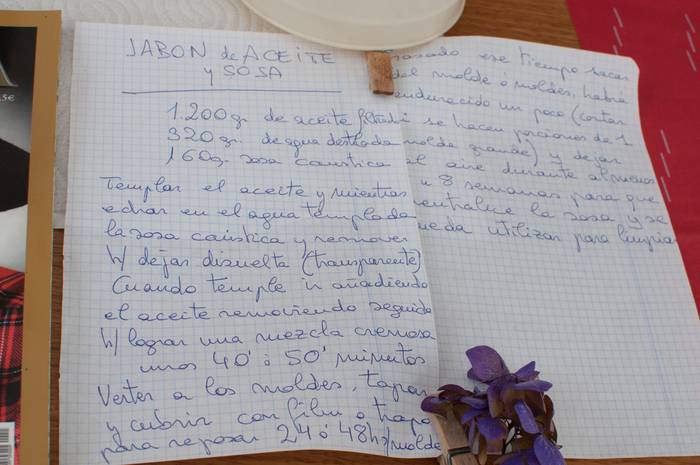 JABON de ACEITE
y SOSA
1.200 gr. de aceite filtrado
320 gr. de agua destilada
160 gr. sosa caustica
Templar el aceite y mientras
echar en el agua templada
la sosa caústica y remover
h/ dejar disuelta (transparente)
Cuando temple ir añadiendo
el aceite removiendo seguido
h/ lograr una mezcla cremosa
unos 40' ó 50' minutos
Verter a los moldes, tapar
y cubrir con film o trapo
para reposar 24 ó 48 hs/molde
Pasado ese tiempo sacar
del molde ó moldes, habrá
endurecido un poco (cortar
si se hacen porciones de 1
molde grande) y dejar
al aire durante
8 semanas para que
neutralice la sosa y se
pueda utilizar para limpiar